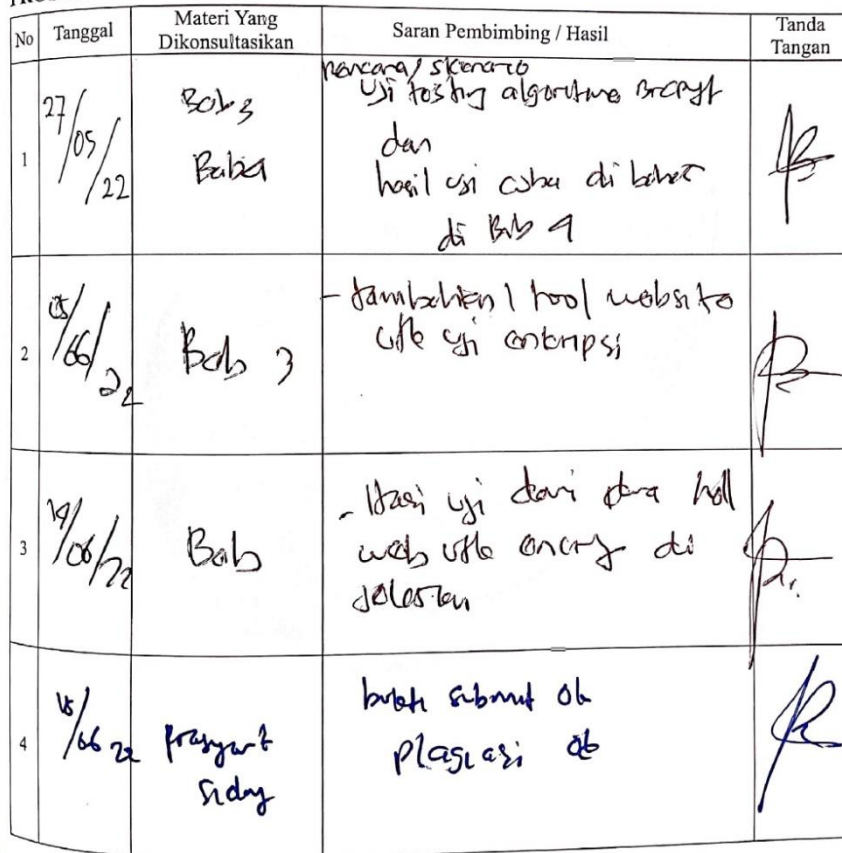 No Tanggal Materi Yang Dikonsultasikan Saran Pembimbing / Hasil Tanda Tangan
1 27/05/22
Bab 3
Bab 4
rencana/ skenario
Uji testing algoritma Bcrypt
dan
hasil uji coba di
di Bab 4
2
/06/22
Bab 3
- tambahkan 1 tool website
utk uji enkripsi
3 14/06/22
Bab
- Hasil uji dari
web utk di
jelaskan
4 15/06 22
prasyarat
sidang
bukti submit ok
plagiasi ok